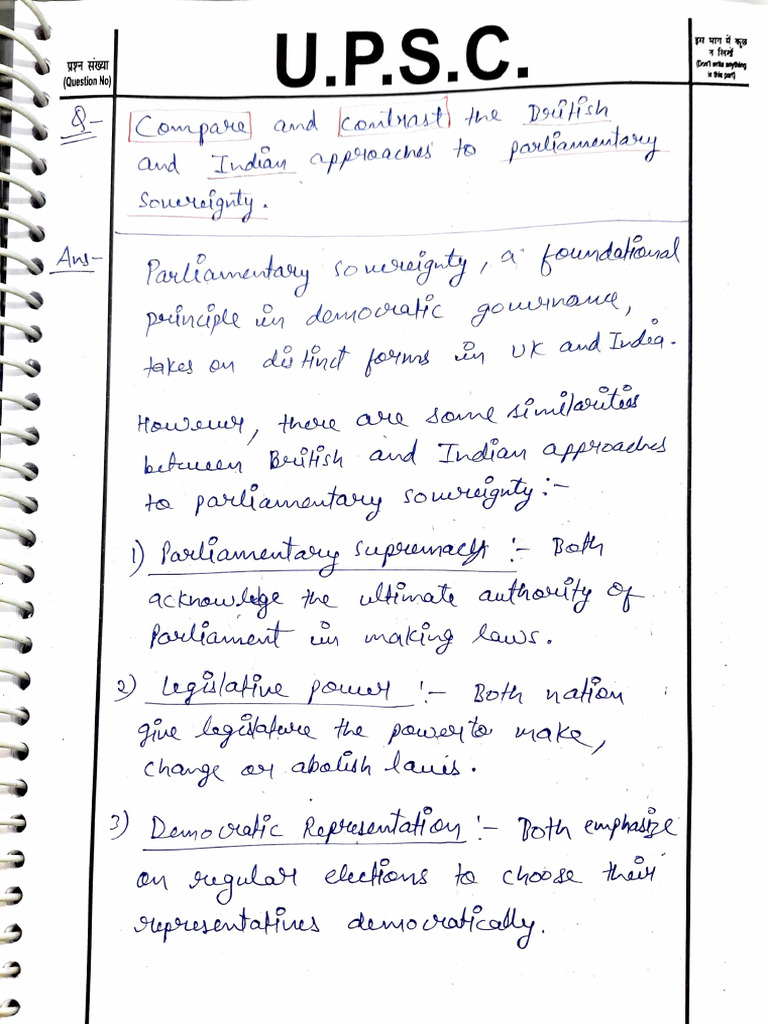 प्रश्न संख्या
(Question No)
U.P.S.C.
इस भाग में कुछ
न लिखें
(Don't write anything
in this part)
Q-
Compare and contrast the British
and Indian approaches to parliamentary
sovereignty.
Ans-
Parliamentary sovereignty, a foundational
principle in democratic governance,
takes on distinct forms in UK and India.
However, there are some similarities
between British and Indian approaches
to parliamentary sovereignty :-
1) Parliamentary supremacy :- Both
acknowlege the ultimate authority of
Parliament in making laws.
2) Legislative power :- Both nation
give legislature the power to make,
change or abolish laws.
3) Democratic Representation :- Both emphasize
on regular elections to choose their
representatives democratically.